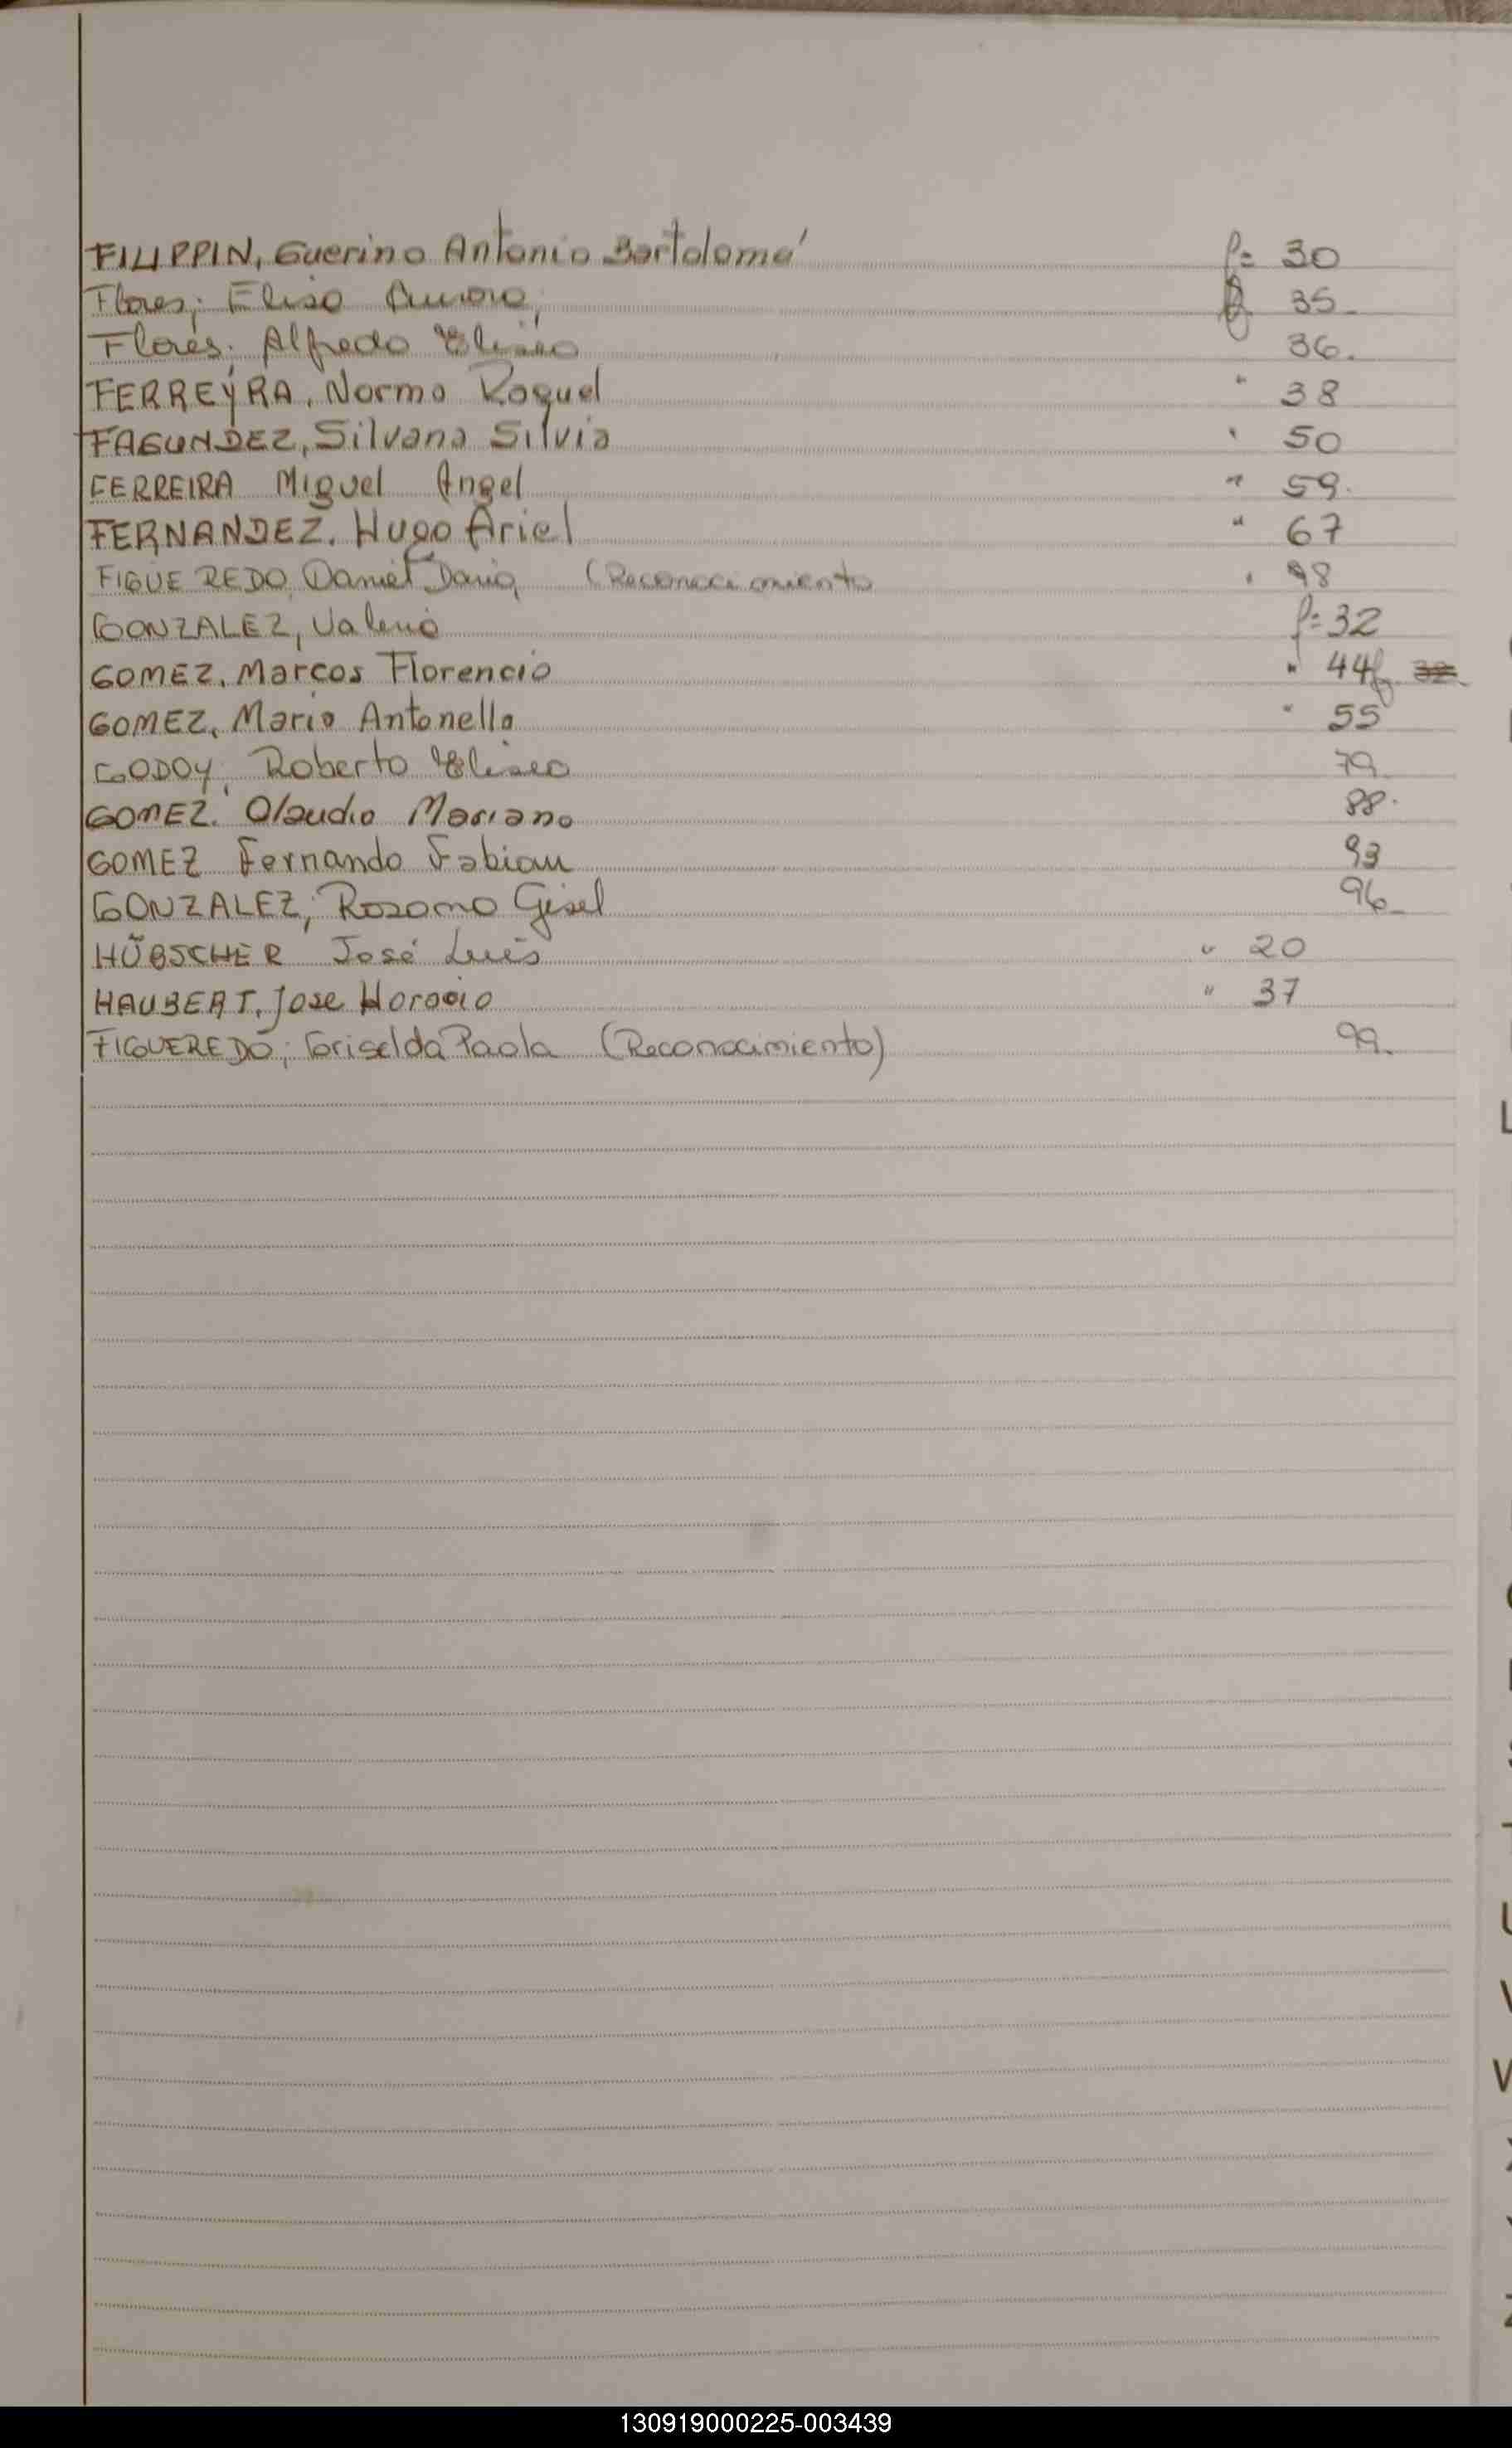 FILIPPIN, Guerino Antonio Bartolomé f= 30
Flores; Elisa Aurora, f 35
Flores; Alfredo Eliseo 36.
FERREYRA, Norma Raquel " 38
FAGUNDEZ, Silvana Silvia " 50
FERREIRA Miguel Angel " 59.
FERNANDEZ, Hugo Ariel " 67
FIGUEREDO, Daniel Dario (Reconocimiento " 98
GONZALEZ, Valeria f= 32
GOMEZ, Marcos Florencio " 44
GOMEZ, Maria Antonella " 55
GODOY, Roberto Eliseo 79
GOMEZ. Claudio Mariano 88.
GOMEZ Fernando Fabian 93
GONZALEZ, Rosana Gisel 96
HÜBSCHER José Luis " 20
HAUBERT, Jose Horacio " 37
FIGUEREDO; Griselda Paola (Reconocimiento) 99
L
U
V
130919000225-003439